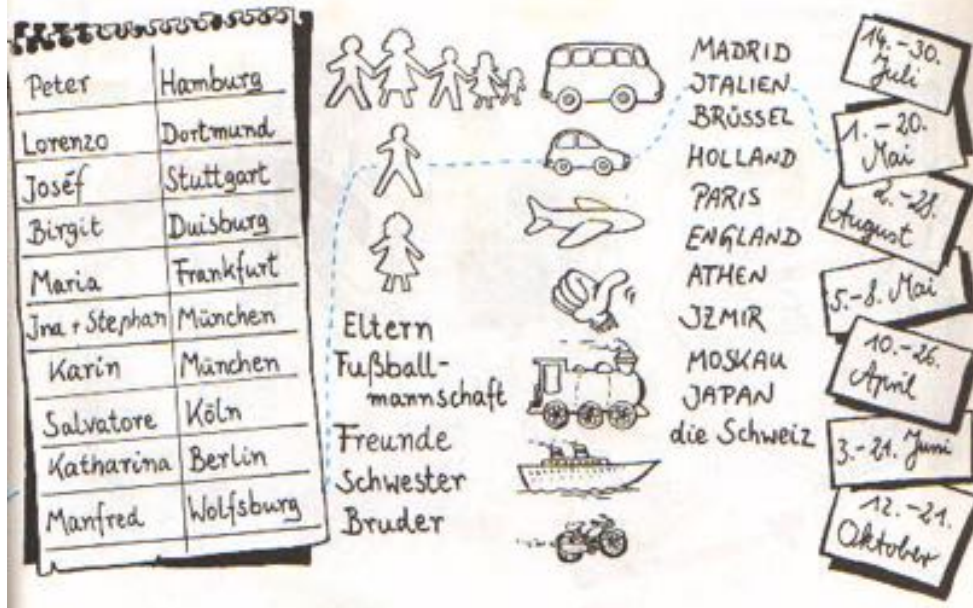 Peter Hamburg
Lorenzo Dortmund
Joséf Stuttgart
Birgit Duisburg
Maria Frankfurt
Ina + Stephan München
Karin München
Salvatore Köln
Katharina Berlin
Manfred Wolfsburg
Eltern
Fußball-
mannschaft
Freunde
Schwester
Bruder
MADRID
ITALIEN
BRÜSSEL
HOLLAND
PARIS
ENGLAND
ATHEN
IZMIR
MOSKAU
JAPAN
die Schweiz
14.-30.
Juli
1.-20.
Mai
2.-28.
August
5.-8. Mai
10.-26.
April
3.-21. Juni
12.-21.
Oktober